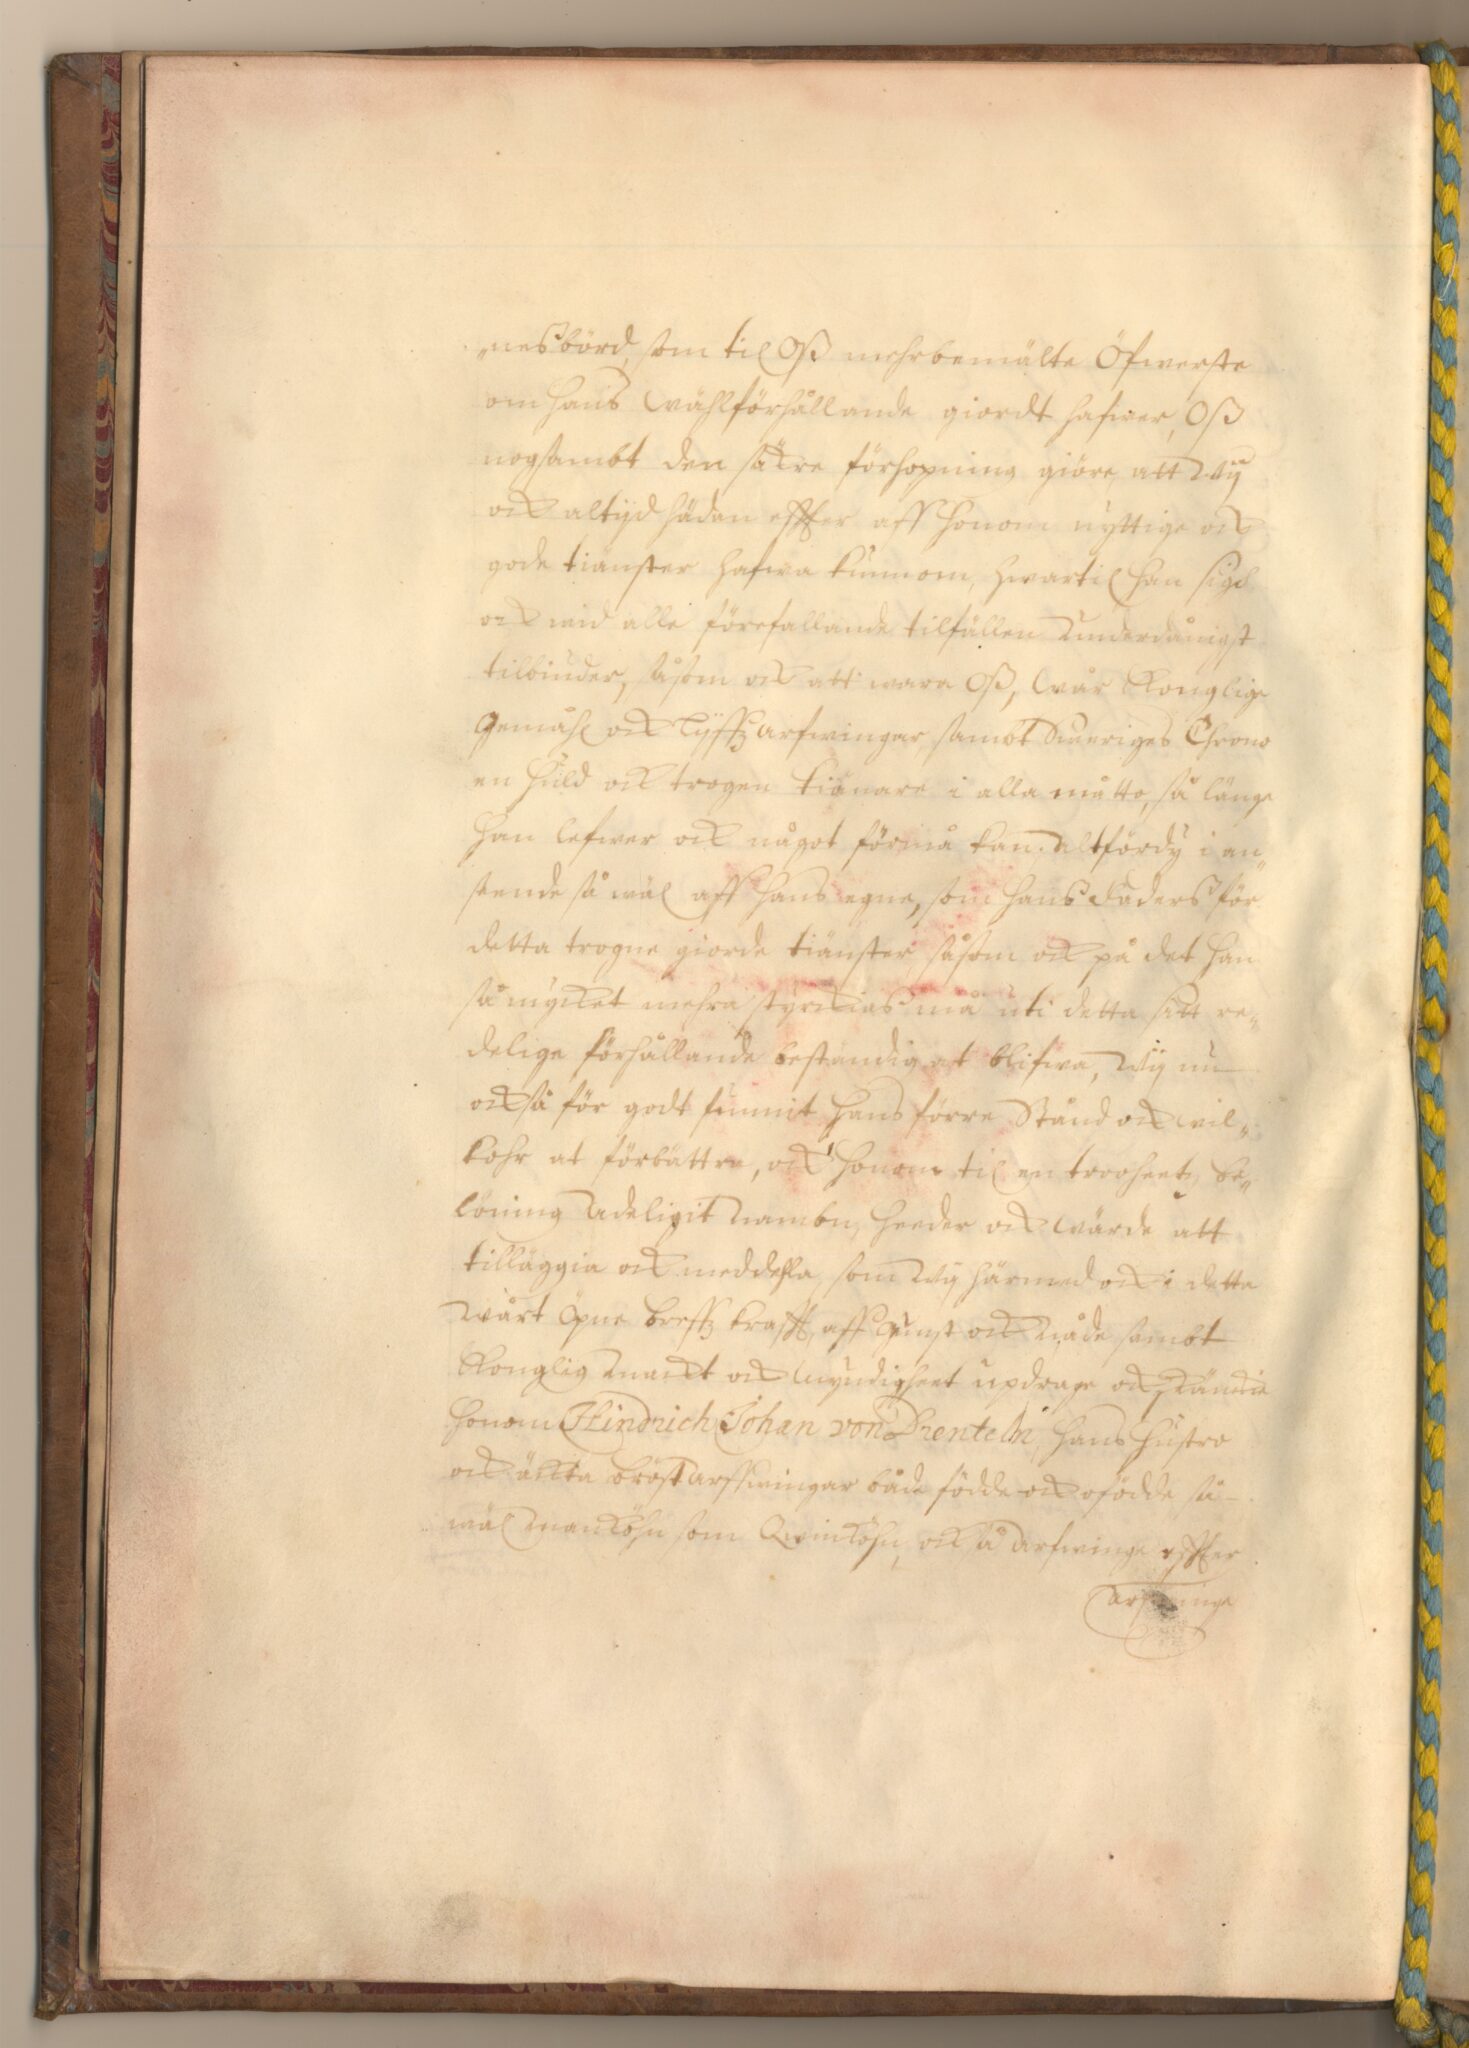 „nesbörd, som til Oß mehrbemälte Öfwerste
om hans wählförhållande giordt hafwer, Oß
nogsambt den säkre förhopning giöre, att Wij
och altijd hädan effter aff honom nyttige och
gode tiänster hafwa kunnom, hwartil han sigh
och wid alle förefallande tilfällen underdånigst
tilbinder, såsom och att wara Oß, wår Konglige
Gemåhl och Lijffzarfwingar, sambt Sweriges Chrono
en huld och trogen tiänare i alla måtto, så länge
han lefwer och något förmå kan. Altfördy i an„
seende så wäl aff hans egne, som hans Faders för
detta trogne giorde tiänster, såsom och på det han
så mycket mehra styrckias må uti detta sitt re„
delige förhållande beständig at blifwa, Wij nu
också för godt funnit hans förre Stånd och wil„
kohr at förbättre, och honom til en trooheetz be„
löning Adeligit Nambn, heeder och wärde att
tilläggia och meddehla, som Wij härmed och i detta
Wårt Öpne breffz krafft, aff Gunst och Nåde sambt
Konglig Macht och Myndigheet updrage och skänckie
honom Hindrich Johan von Brenteln, hans hustro
och ächta bröstarffwingar både födde och ofödde så
wäl Manköhn som Qwinköhn, och så arfwinge effter
arfwinge